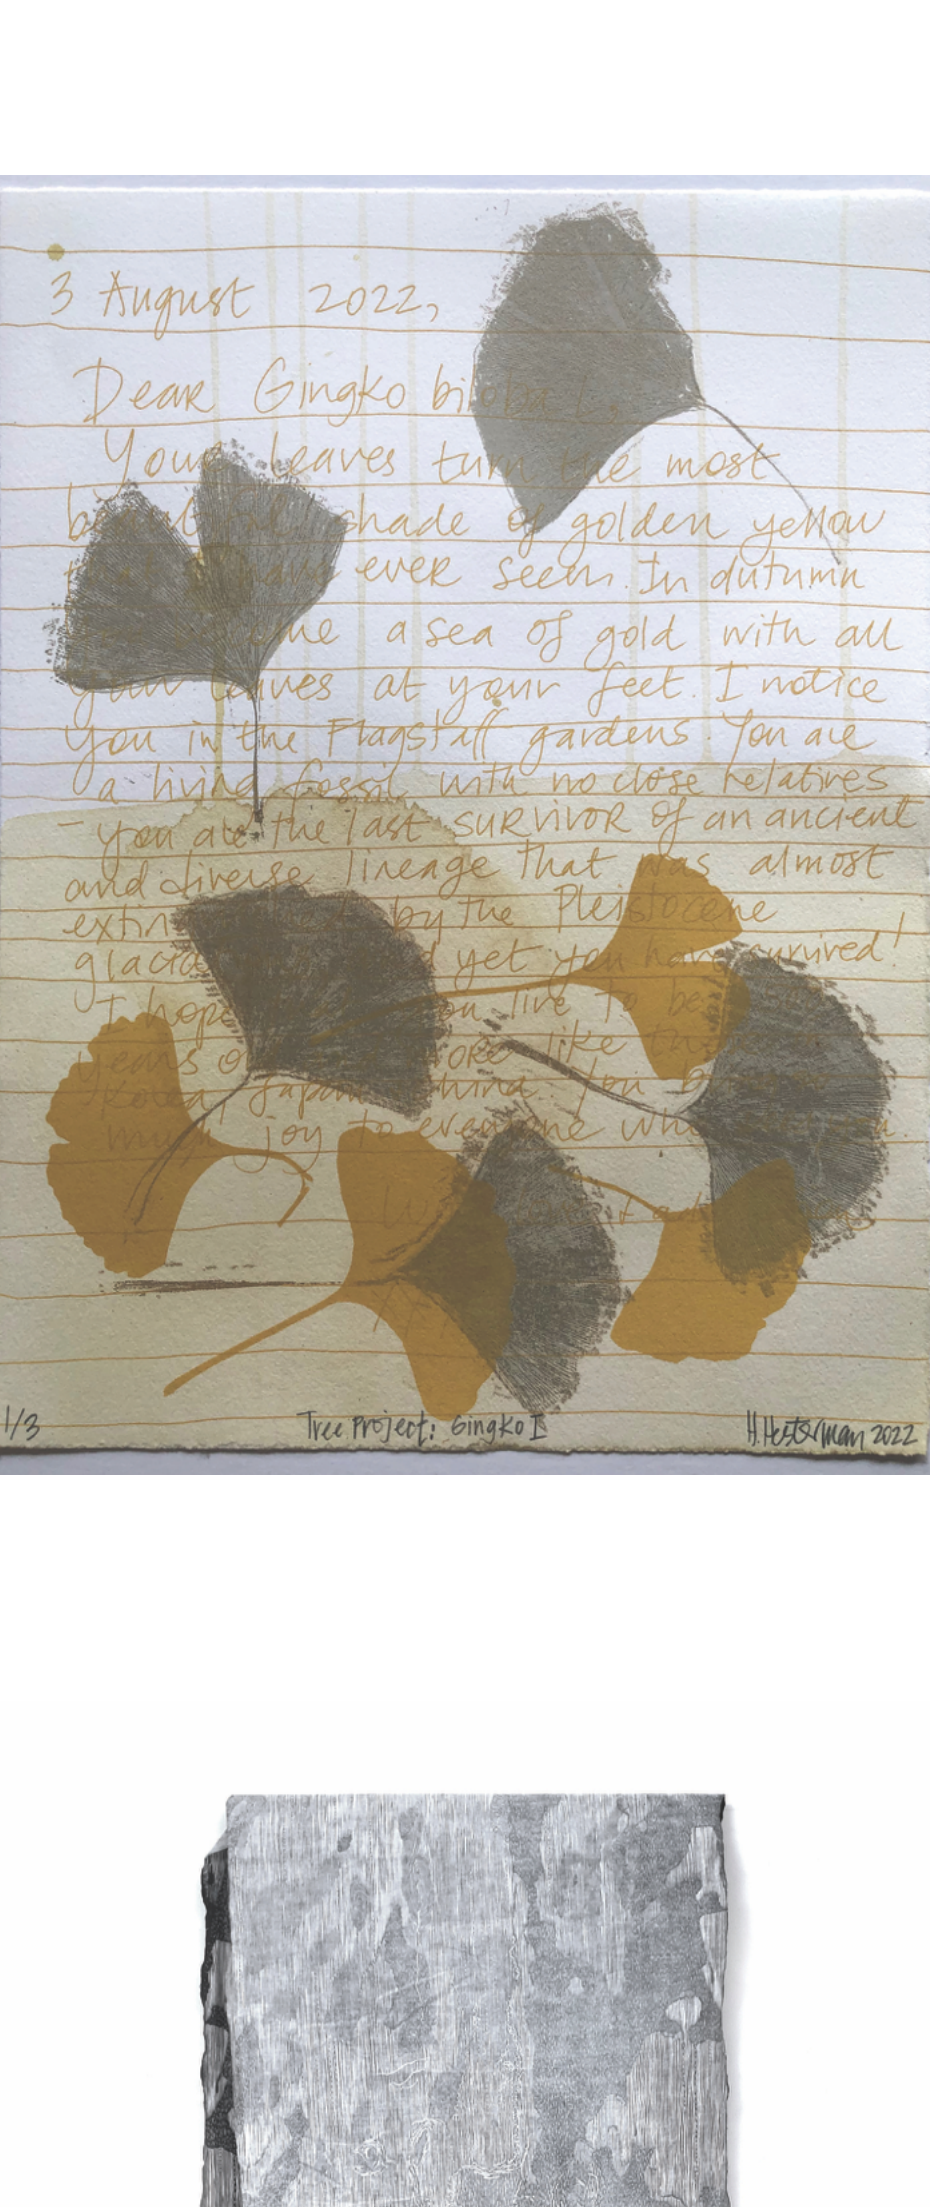 3 August 2022,
Dear Gingko biloba L.
Your leaves turn the most
beautiful shade of golden yellow
have ever seen. In autumn
a sea of gold with all
your leaves at your feet. I notice
you in the Flagstaff gardens. You are
a living fossil with no close relatives
- you are the last survivor of an ancient
and diverse lineage that was almost
by the Pleistocene
yet you have survived!
I hope you live to be
years like
Korea, Japan China You
much joy to everyone who
1/3 Tree Project: Gingko I H.Hesterman 2022